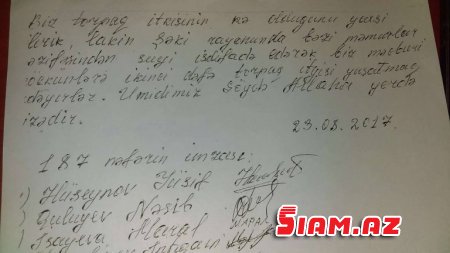 Biz torpaq itkisinin nə olduğunu yaxşı
bilirik, lakin Şəki rayonunda bəzi məmurlar
vəzifəsindən suyi isdifadə edərək, bir məcburi
köçkünlərə ikinci dəfə torpaq itgisi yaşatmaq
istəyirlər. Ümidimiz Göydə Allaha yerdə
sizədir.
23.08.2017.
187 nəfərin imzası:
1) Hüseynov Yusif
) Quluyev Nəsib
) İsayeva Maral
SIAM.AZ